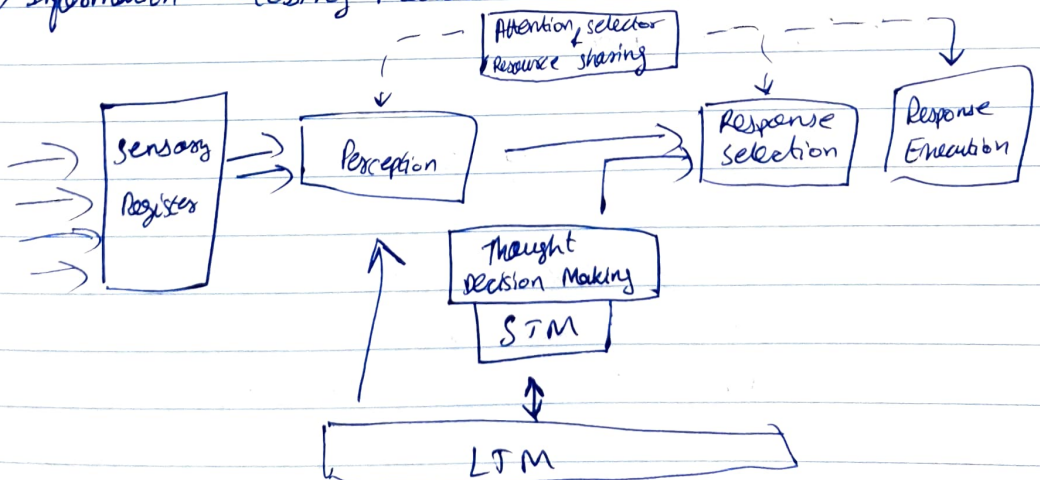 Information
Attention selector
Resource sharing
Sensory
Register
Perception
Response
Selection
Response
Execution
Thought
Decision Making
STM
LTM